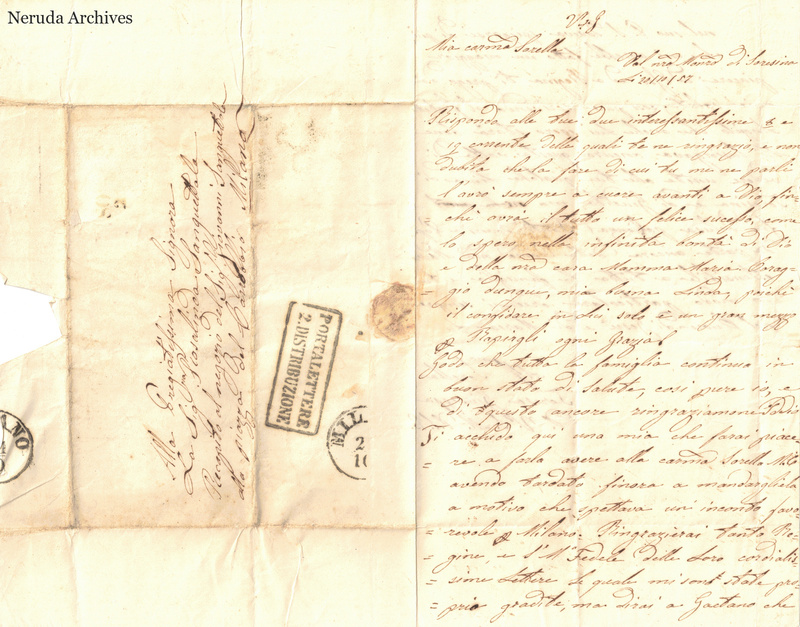 Neruda Archives
Alla Pregiatissima Signora
La Sig.
Recapito al negozio del Sig. Giovanni
alla piazza del Milano
PORTALETTERE
2. DISTRIBUZIONE
MIL
2
10
ANO
Mia carma Sorella
Dal nro Monro di Soresina
Li 20/10/57
Rispondo alle tue due interessantissime 8 e
15 corrente delle quali te ne ringrazio, e non
dubita che la fare di cui tu me ne parli
l'avrò sempre a cuore avanti a Dio, fin=
=chè avrà il tutto un felice sucesso, come
lo spero nella infinita bontà di Dio
e della nra cara Mamma Maria. Corag=
=gio dunque, mia buona Linda, poichè
il confidare in Lui solo è un gran mezzo
Rapirgli ogni Grazia!
Godo che tutta la famiglia continua in
buon stato di salute, così pure io, e
di questo ancora ringraziamone Iddio
Ti acchiudo qui una mia che farai piace=
=re a farla avere alla carma Sorella
avendo tardato finora a mandargliela
a motivo che aspettava un' incontro favo=
=revole Milano. Ringrazierai tanto Re=
=gina, e Fedele delle Loro cordialis=
=sime Lettere le quali mi sono state pro=
=prio gradite, ma dirai a Gaetano che